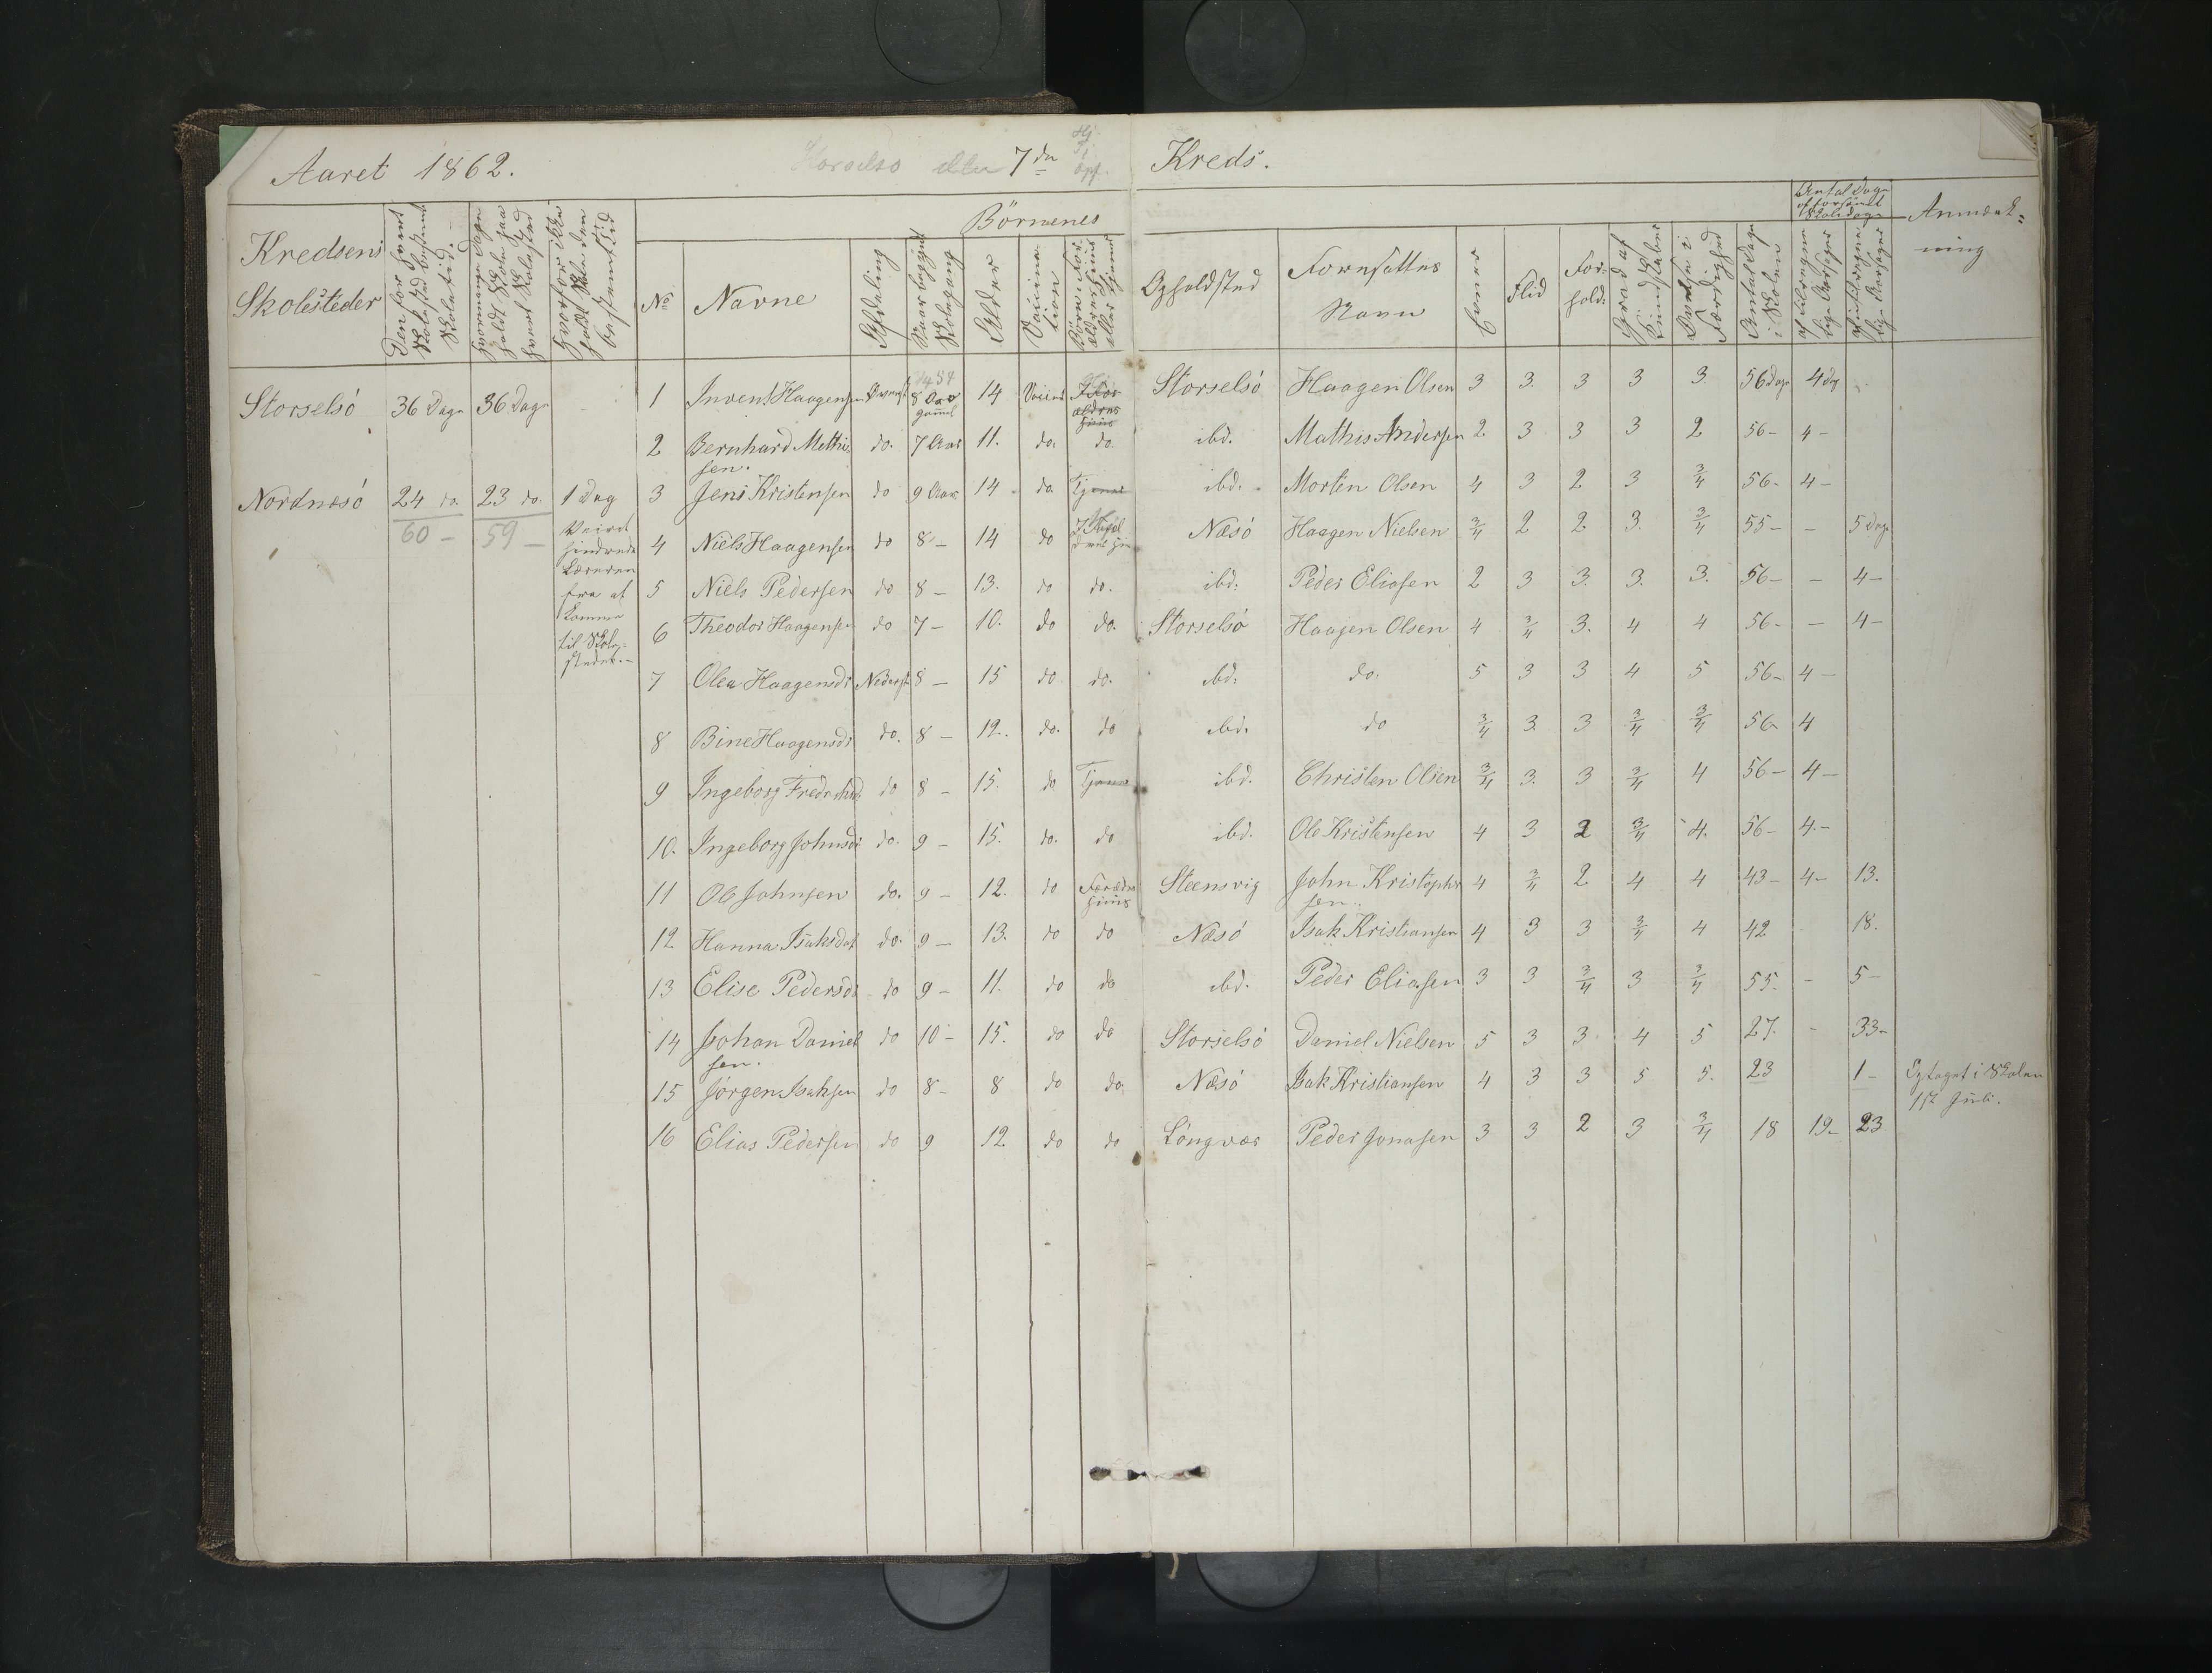 Aaret 1862.
Storselsö eller 7de Kreds.
Kredsens
Skolesteder
Hvormange Dage
holdt Skole paa
hvert Skolested
Hvorfor ikke
holdt Skole den
bestemt Tid
Börnenes
No
Navne
Afdeling
Naar begyndt
Skolegang
Alder
Vaccina-
tion
Opholdsted
Foresattes
Navn
Evner
Flid
For-
hold:
Grad af
Kundskaber
Antal Dage
i Skolen
Antal Dage
forsömt
Skoledage
Anmærk-
ning
Storselsö 36 Dage 36 Dage
Nordnæsö 24 do. 23 do. 1 Dag
60 - 59 -
Veiret
hindrede
Læreren
fra at
komme
til Skole-
stedet.-
1 Haagensen 8 Aar gammel 14 Vaccine Storselsö Haagen Olsen 3 3. 3 3 3. 56 Dage 4 Dg
2 Bernhard Mathis- do. 7 Aar 11. do. do. ibd. Mathis Andersen 2 3 3 3 2 56- 4-
sen.
3 Jens Kristensen do 9 Aar 14 do Tjener ibd. Morten Olsen 4 3 2 3 3/4 56- 4-
4 Niels Haagensen do 8- 14 do Næsö Haagen Nielsen 3/4 2 2 3. 3/4 55- - 5 Dage
5 Niels Pedersen do 8- 13. do do. ibd: Peder Eliasen 2 3 3. 3. 3. 56- - 4-
6 Theodor Haagensen do 7- 10. do do. Storselsö Haagen Olsen 4 3/4 3. 4 4 56- - 4-
7 Olea Haagensdr Nederst 8- 15 do do. ibd. do. 5 3 3 4 5 56- 4-
8 Bine Haagensdr do. 8- 12. do. do ibd. do 3/4 3. 3 3/4 3/4 56- 4
9 Ingeborg do 8- 15. do Tjener ibd. Christen Olsen 3/4 3. 3 3/4 4 56- 4-
10. Ingeborg Johnsdr do. 9- 15. do. do ibd. Ole Kristensen 4 3 2 3/4 4. 56- 4.-
11 Ole Johnsen do. 9- 12. do Forældre Huus Steensvig John Kristopher- 4 3/4 2 4 4 43- 4- 13.
sen.
12 Hanna Isaksdat do. 9- 13. do do Næsö Isak Kristiansen 4 3 3 3/4 4 42 18.
13 Elise Pedersdr do 9- 11. do do ibd. Peder Eliasen 3 3 3/4 3 3/4 55. - 5-
14 Johan Daniel- do 10- 15. do do Storselsö Daniel Nielsen 5 3 3 4 5 27. - 33-
sen.
15 Jörgen Isaksen do 8- 8 do do. Næsö Isak Kristiansen 4 3 3 5 5. 23 1- Optaget i Skolen
1st Juli.
16 Elias Pedersen do 9 12 do do Löngvær Peder Jonasen 3 3 2 3 3/4 18 19- 23